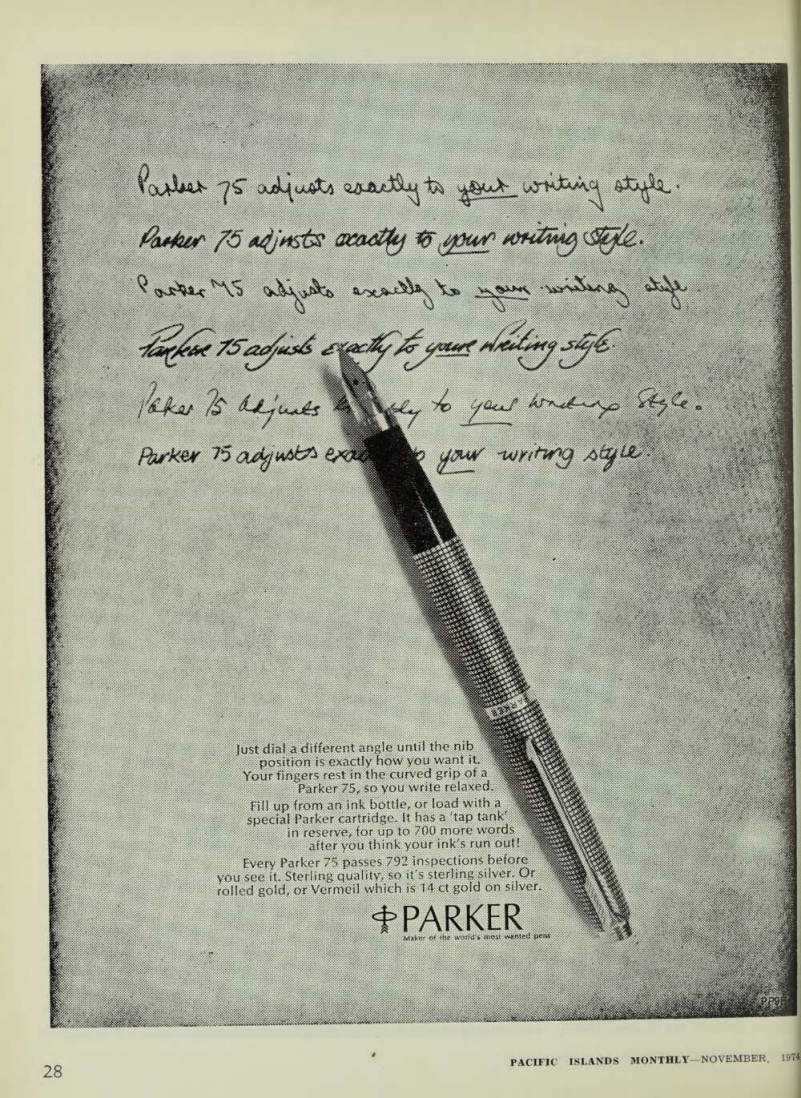 Parker 75 adjusts exactly to your writing style.
Parker 75 adjusts exactly to your writing style.
Parker 75 adjusts exactly to your writing style.
Parker 75 adjusts exactly to your writing style.
Parker 75 adjusts to your writing style.
Parker 75 adjusts your writing style.
PARKER
Just dial a different angle until the nib
position is exactly how you want it.
Your fingers rest in the curved grip of a
Parker 75, so you write relaxed.
Fill up from an ink bottle, or load with a
special Parker cartridge. It has a 'tap tank'
in reserve, for up to 700 more words
after you think your ink's run out!
Every Parker 75 passes 792 inspections before
you see it. Sterling quality, so it's sterling silver. Or
rolled gold, or Vermeil which is 14 ct gold on silver.
PARKER
Maker of the world's most wanted pens
28
PACIFIC ISLANDS MONTHLY—NOVEMBER, 1974